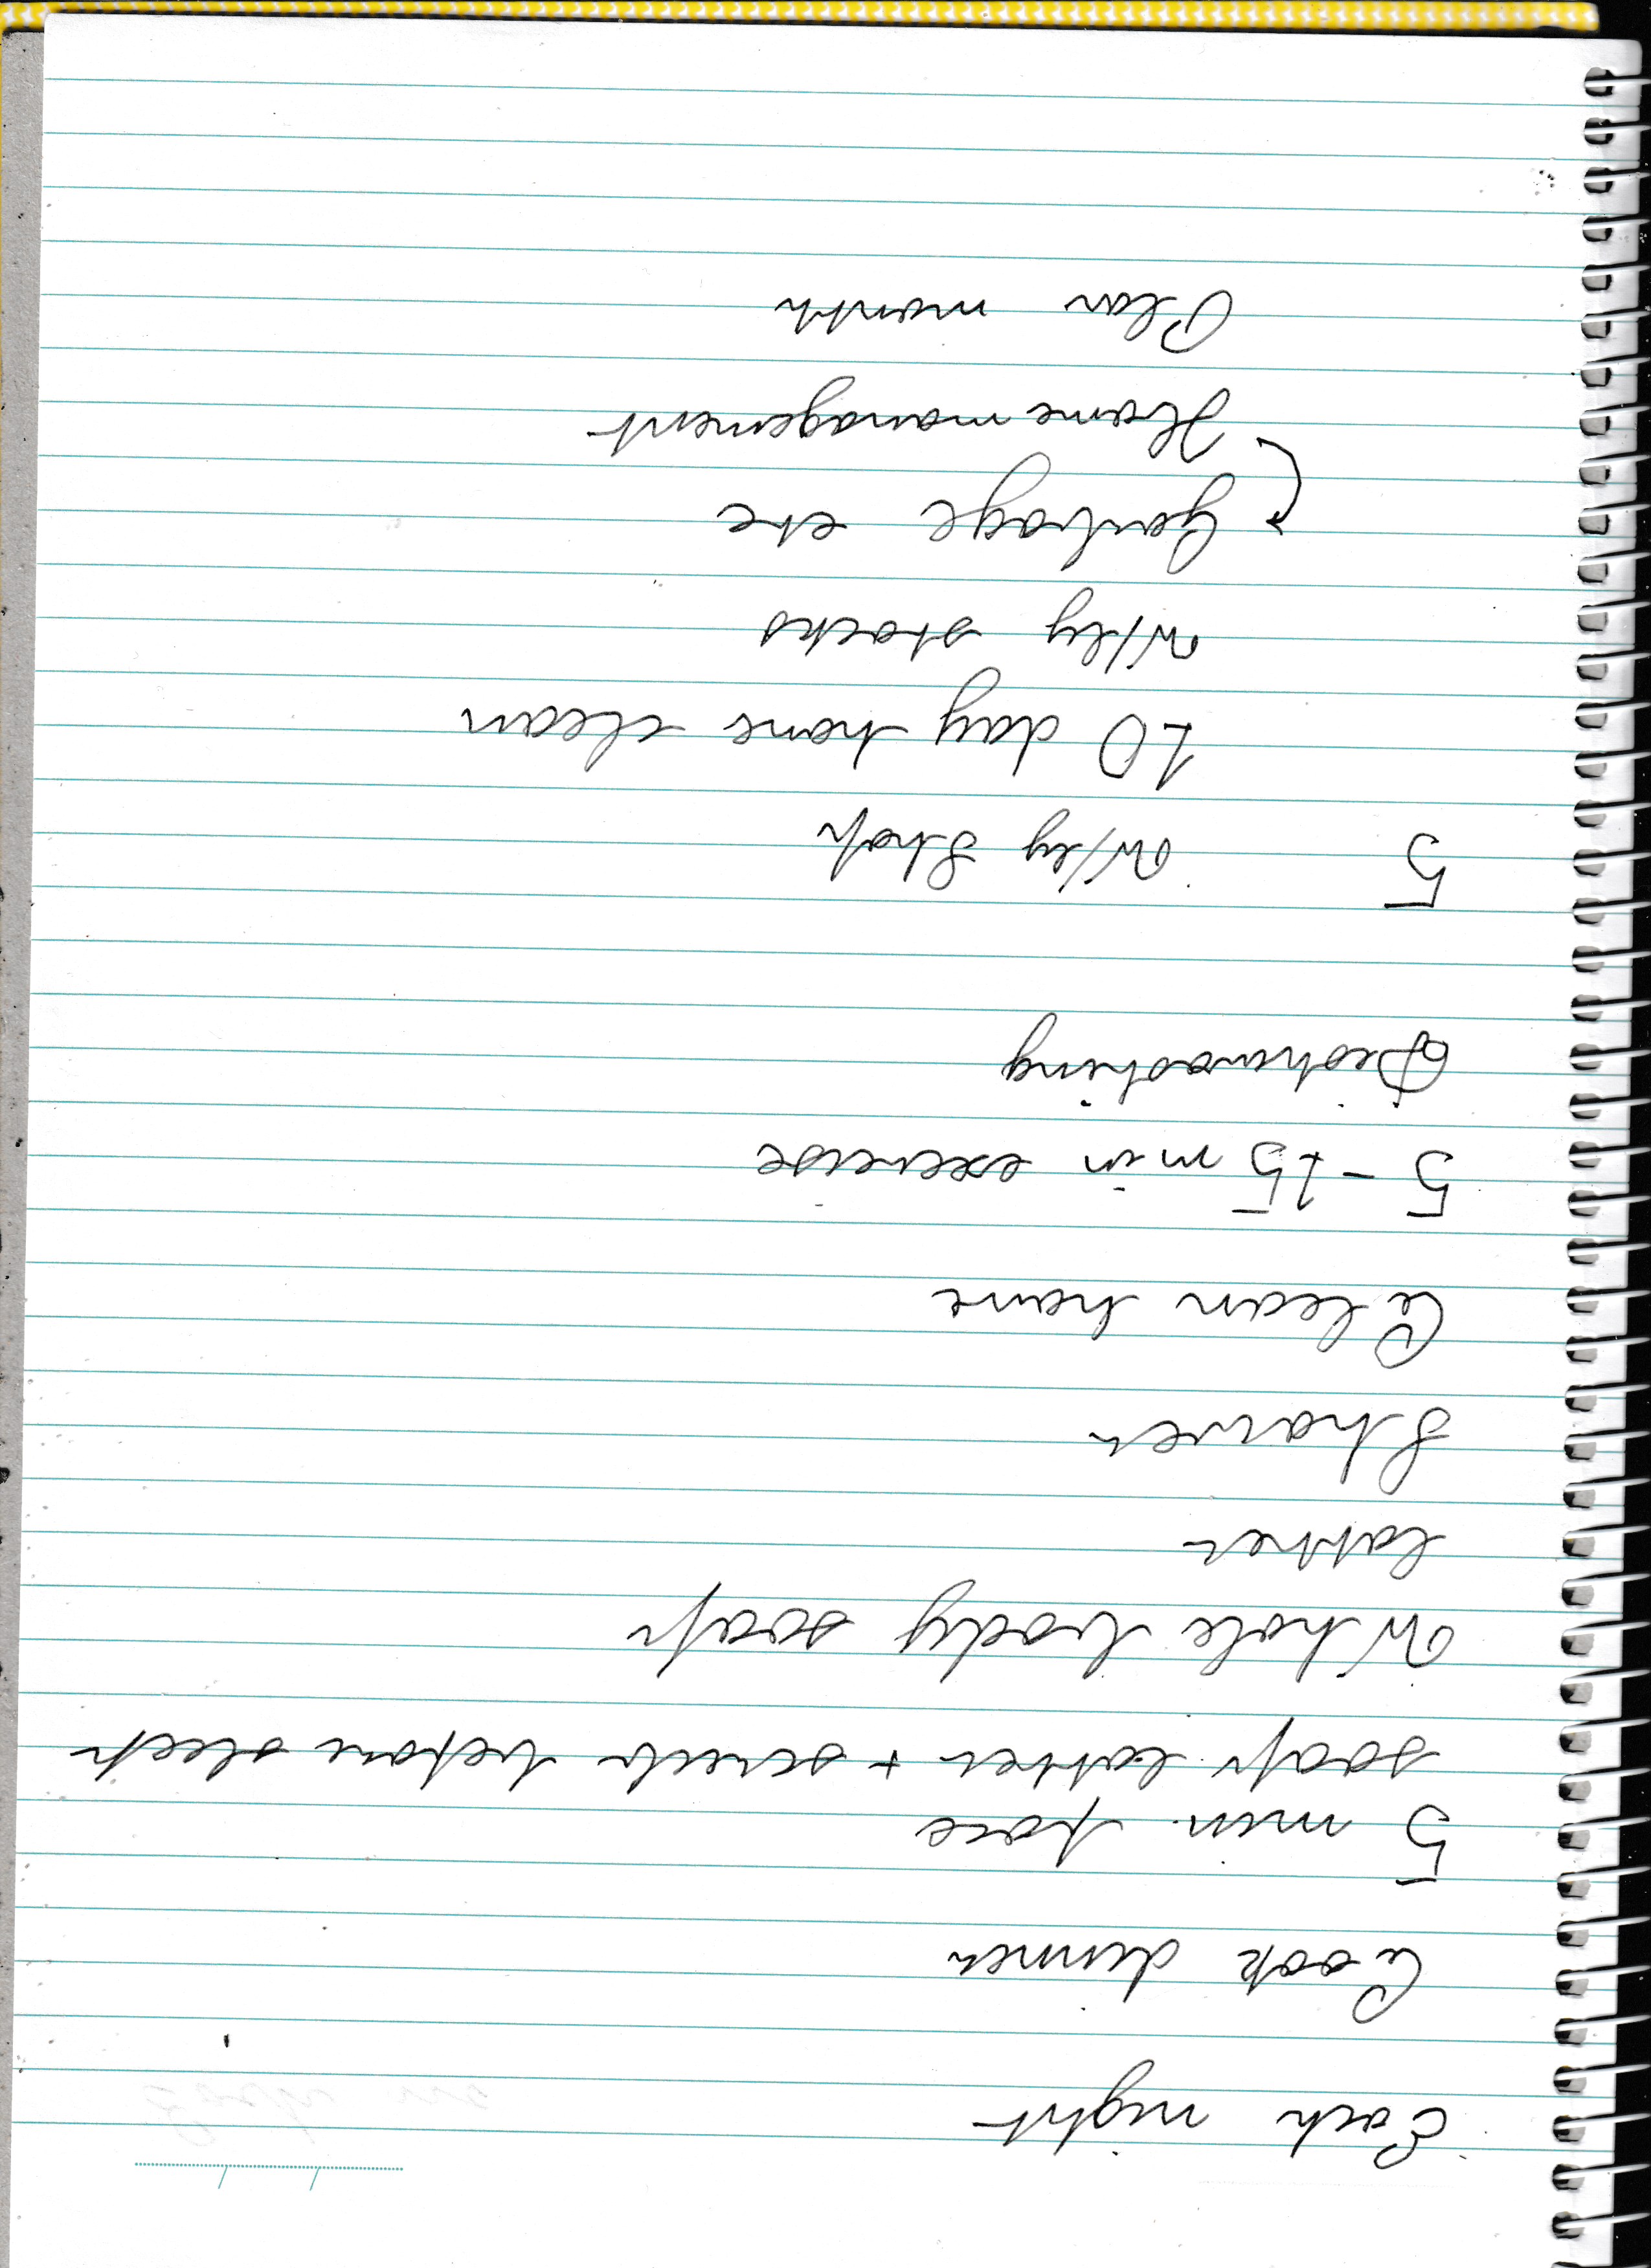 Each night
Cook dinner
5 min. face
soap lather + scrub before sleep
Whole body soap
lather
Shower
Clean home
5 - 15 min exercise
Dishwashing
5 W/ly Shop
10 day home clean
W/ly stocks
Garbage etc
Home management
Plan month